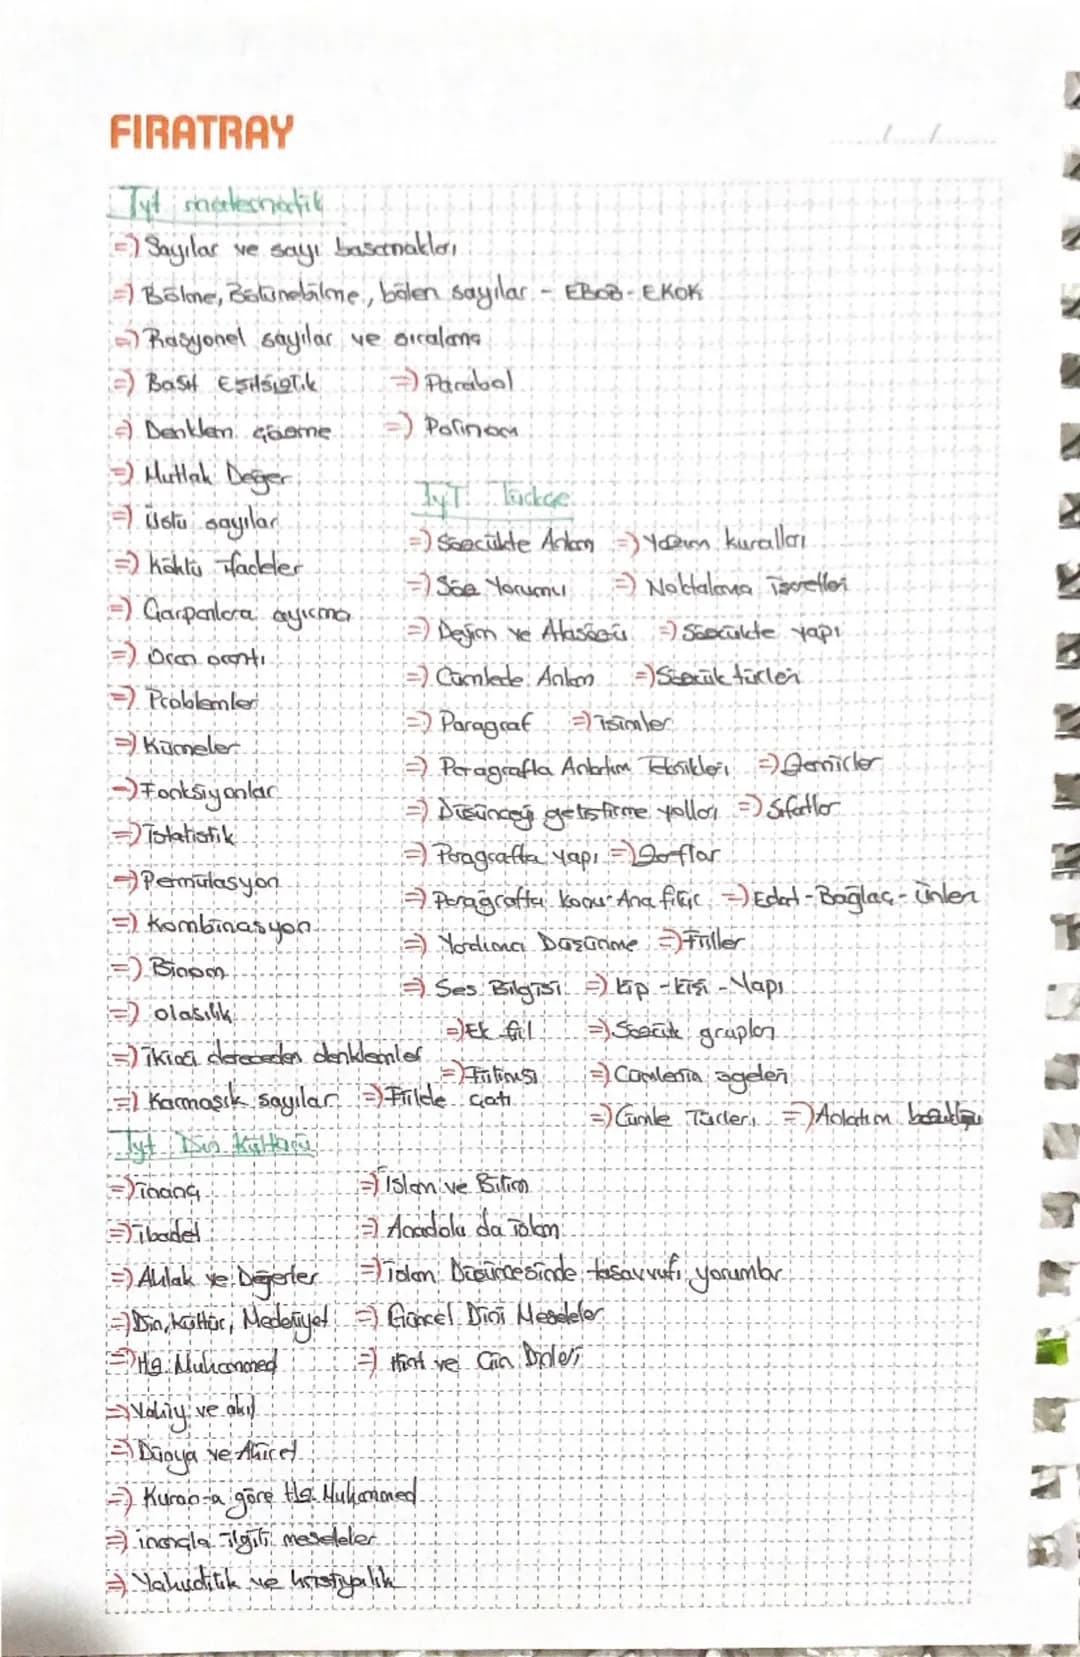 FIRATRAY
Tyt matematik
=) Sayılar ve sayı basamakları
=) Bölme, Bölünebilme, bölen sayılar - EBOB - EKOK
=) Rasyonel sayılar ve sıralama
=) Basit Eşitsizlik =) Parabol
=) Denklem çözme =) Polinom
=) Mutlak Değer
=) üslü sayılar
=) köklü ifadeler
=) Çarpanlara ayırma
=) Oran orantı
=) Problemler
=) Kümeler
=) Fonksiyonlar
=) İstatistik
=) Permülasyon
=) Kombinasyon
=) Binom
=) olasılık
=) ikinci dereceden denklemler
=) Karmaşık sayılar
TYT Türkçe
=) Sözcükte Anlam =) Yazım kuralları
=) Söz Yorumu =) Noktalama işaretleri
=) Deyim ve Atasözü =) Sözcükte yapı
=) Cümlede Anlam =) Sözcük türleri
=) Paragraf =) isimler
=) Paragrafta Anlatım Teknikleri =) Zamirler
=) Düşünceyi geliştirme yolları =) Sıfatlar
=) Paragrafta yapı =) Zarflar
=) Paragrafta Konu-Ana fikir =) Edat - Bağlaç - ünlem
=) Yardımcı Düşünme =) Fiiller
=) Ses Bilgisi =) kip - kişi - Yapı
=) Ek fiil =) Sözcük grupları
=) Fiilimsi =) Cümlenin ögeleri
=) Fiilde Çatı =) Cümle Türleri =) Anlatım bozukluğu
Tyt Din Kültürü
=) inanç =) İslam ve Bilim
=) ibadet =) Anadolu da islam
=) Ahlak ve Değerler =) islam Düşüncesinde tasavvufi yorumlar
=) Din, Kültür, Medeniyet =) Güncel Dini Meseleler
=) Hz. Muhammed =) Hint ve Çin Dinleri
=) Vahiy ve akıl
=) Dünya ve Ahiret
=) Kuran-a göre Hz. Muhammed
=) inançla ilgili meseleler
=) Yahudilik ve hristiyalik